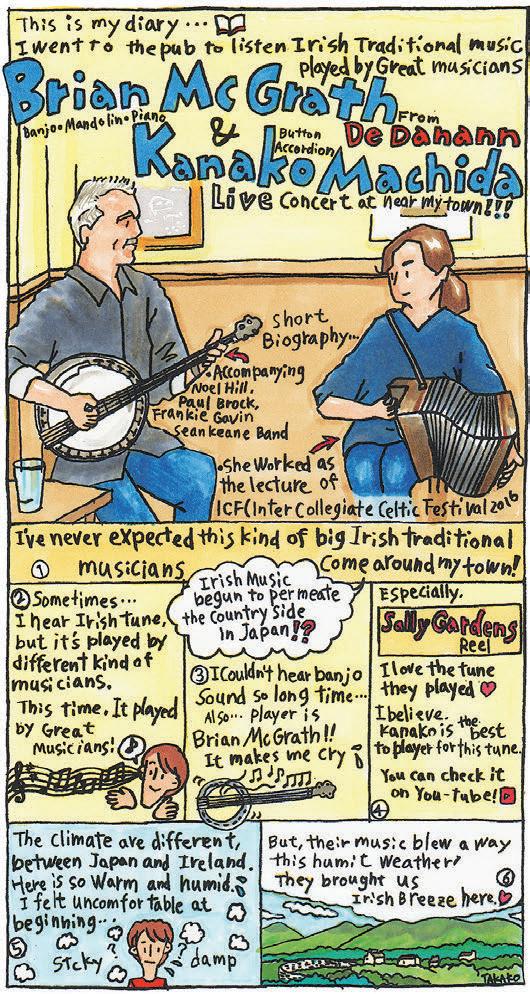 This is my diary...
I went to the pub to listen Irish Traditional music
played by Great musicians
Brian McGrath
Banjo • Mandolin • Piano
From
De Danann
&
Button
Accordion
Kanako Machida
Live Concert at near my town!!!
Short
Biography...
• Accompanying
Noel Hill,
Paul Brock,
Frankie Gavin
Sean keane Band
• She Worked as
the lecture of
ICF(Inter Collegiate Celtic Festival 2016
I've never expected this kind of big Irish traditional
① musicians
Come around my town!
Irish Music
begun to permeate
the Country Side
in Japan!?
② Sometimes...
I hear Irish tune,
but it's played by
different kind of
musicians.
This time, It played
by Great
Musicians!
③ I Couldn't hear banjo
Sound so long time...
Also... player is
Brian McGrath!!
It makes me cry
Especially,
Sally Gardens
Reel
I love the tune
they played ♥
I believe.
Kanako is the best
to player for this tune.
You can check it
on You-tube!
④
The Climate are different,
between Japan and Ireland.
Here is so Warm and humid.
I felt uncomfortable at
beginning...
⑤
stcky
damp
But, their music blew a way
this humit Weather!
They brought us
Irish Breeze here. ♥
⑥
TAKAKO